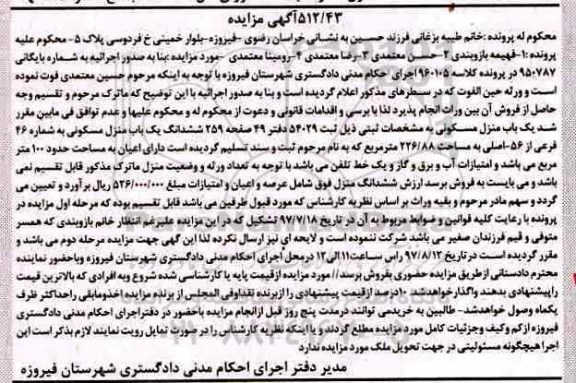 ۵۱۲/۴۳آگهی مزایده
محکوم له پرونده :خانم طیبه بزغانی فرزند حسین به نشانی خراسان رضوی -فیروزه-بلوار خمینی خ فردوسی پلاک ۵ - محکوم علیه
پرونده :۱-فهیمه بازوبندی ۲-حسن معتمدی ۳-رضا معتمدی ۴-رومینا معتمدی -مورد مزایده :بنا به صدور اجرائیه به شماره بایگانی
۹۵۰۷۸۷ در پرونده کلاسه ۹۶۰۱۰۵ اجرای احکام مدنی دادگستری شهرستان فیروزه با توجه به اینکه مرحوم حسین معتمدی فوت نموده
است و ورثه حین الفوت که در سطرهای مذکور اعلام گردیده است و بنا به صدور اجرائیه با این توضیح که ماترک مرحوم و تقسیم وجه
حاصل از فروش آن بین وراث انجام پذیرد لذا با برسی و اقدامات قانونی و دعوت از محکوم له و محکوم علیها و عدم توافق فی مابین مقرر
شد یک باب منزل مسکونی به مشخصات ثبتی ذیل ثبت ۵۴۰۲۹ دفتر ۴۹ صفحه ۲۵۹ ششدانگ یک باب منزل مسکونی به شماره ۴۶
فرعی از ۵۶-اصلی به مساحت ۲۲۶/۸۸ مترمربع که به نام مرحوم ثبت و سند تسلیم گردیده است دارای اعیان به مساحت حدود ۱۰۰ متر
مربع می باشد و امتیازات آب و برق و گاز و یک خط تلفن می باشد با توجه به تعداد ورثه و وضعیت منزل ماترک مذکور قابل تقسیم نمی
باشد و می بایست به فروش برسد ارزش ششدانگ منزل فوق شامل عرصه و اعیان و امتیازات مبلغ ۵۳۶/۰۰۰/۰۰۰ ریال برآورد و تعیین می
گردد و سهم مادر مرحوم و بقیه وراث بر اساس نظریه کارشناس که مورد قبول طرفین می باشد قابل تقسیم بوده که مرحله اول مزایده در
پرونده با رعایت کلیه قوانین و ضوابط مربوط به آن در تاریخ ۹۷/۷/۱۸ تشکیل که در این مزایده علیرغم انتظار خانم بازوبندی که همسر
متوفی و قیم فرزندان صغیر می باشد شرکت ننموده است و لایحه ای نیز ارسال نکرده لذا این آگهی جهت مزایده مرحله دوم می باشد و
مقرر گردیده است در تاریخ ۹۷/۸/۱۲ راس ساعت۱۱الی۱۲ درمحل اجرای احکام مدنی دادگستری شهرستان فیروزه وباحضور نماینده
محترم دادستانی از طریق مزایده حضوری بفروش برسد // مورد مزایده ازقیمت پایه یا کارشناسی شده شروع وبه افرادی که بالاترین قیمت
راپیشنهادی بدهند واگذارخواهدشد ۱۰درصد ازقیمت پیشنهادی را ازبرنده تقداوفی المجلس از برنده مزایده اخذومابقی راحداکثر ظرف
یکماه وصول خواهدشد- طالبین به خریدمی توانند درمدت پنج روز قبل ازانجام مزایده باحضور در دفتراجرای احکام مدنی دادگستری
فیروزه ازکم وکیف وجزئیات کامل مورد مزایده مطلع گردند و یا اینکه نظریه کارشناس را در صورت تمایل رویت نمایند لازم بذکر است این
اجرا هیچگونه مسئولیتی در جهت تحویل ملک مورد مزایده ندارد
مدیر دفتر اجرای احکام مدنی دادگستری شهرستان فیروزه